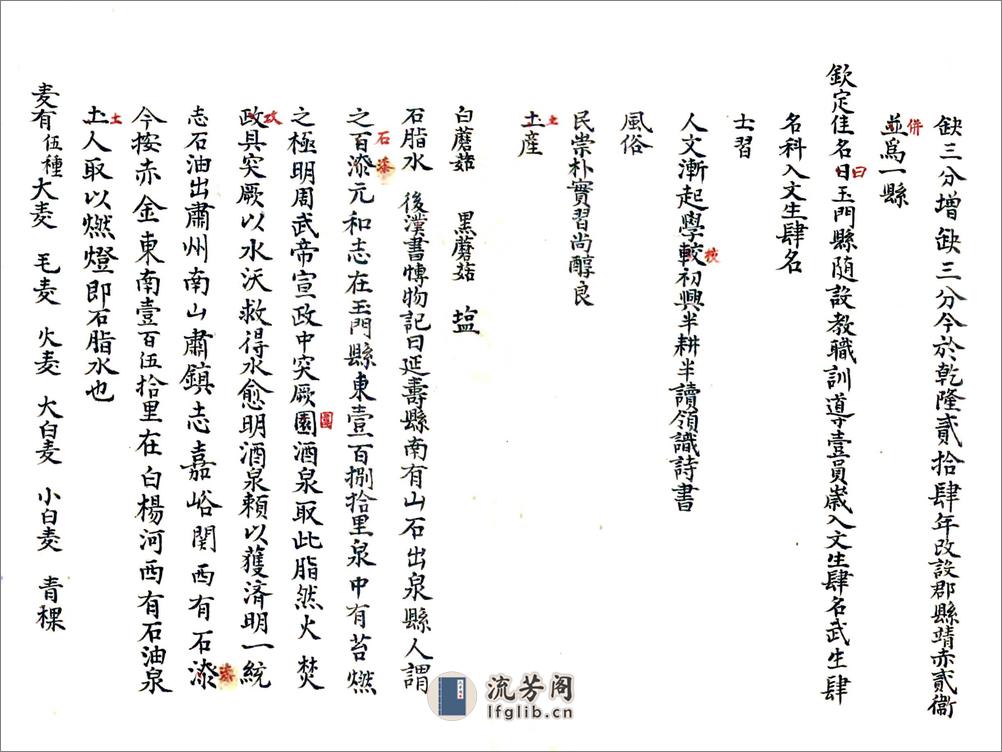 缺三分增缺三分今於乾隆貳拾肆年改設郡縣靖赤貳衞
並爲一縣
併
欽定佳名日玉門縣随設教職訓導壹員歲入文生肆名武生肆
曰
名科入文生肆名
士習
人文漸起學較初興半耕半讀領識詩書
校
風俗
民崇朴實習尚醇良
土産
土
白蘑菇 黑蘑菇 塩
石脂水 後漢書博物記曰延壽縣南有山石出泉縣人謂
之百漆元和志在玉門縣東壹百捌拾里泉中有苔燃
石漆
之極明周武帝宣政中突厥圍酒泉取此脂然火焚
圍
政具突厥以水沃救得水愈明酒泉賴以獲济明一統
攻
志石油出肅州南山肅鎮志嘉峪関西有石漆
漆
今按赤金東南壹百伍拾里在白楊河西有石油泉
土人取以燃燈即石脂水也
土
麦有伍種大麦 毛麦 火麦 大白麦 小白麦 青稞
流芳阁
lfglib.cn